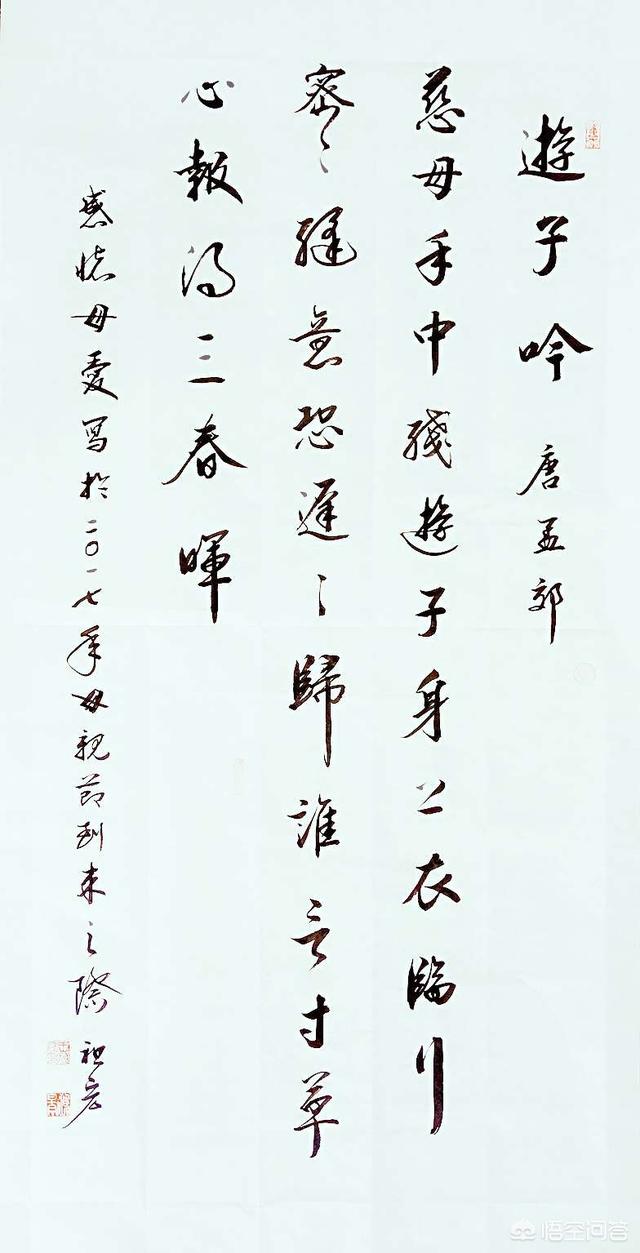 遊子吟 唐孟郊
慈母手中綫遊子身上衣臨行
密々縫意恐遲々歸誰言寸草
心報得三春暉
感懷母愛寫於二〇一七年母親節到来之際
悟空问答